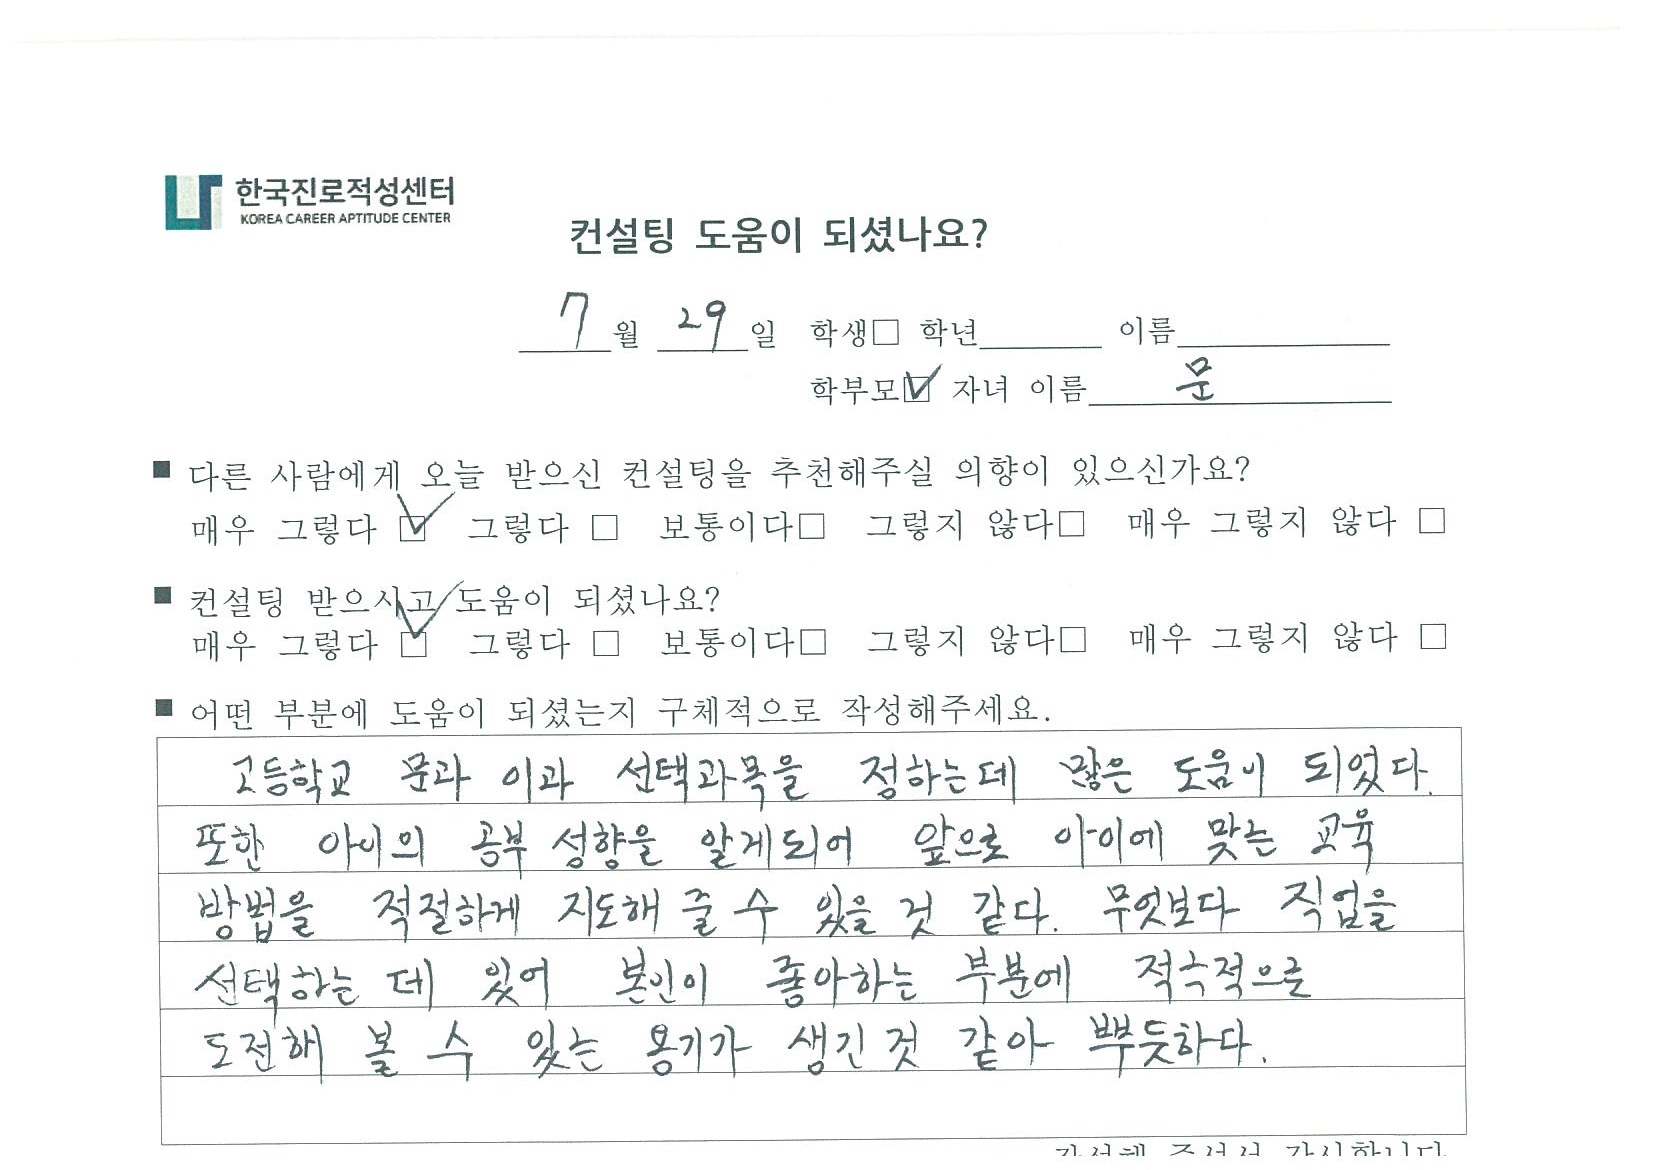 한국진로적성센터
KOREA CAREER APTITUDE CENTER
컨설팅 도움이 되셨나요?
7월 29일 학생□ 학년 이름
학부모☑ 자녀 이름 문
■ 다른 사람에게 오늘 받으신 컨설팅을 추천해주실 의향이 있으신가요?
매우 그렇다 ☑ 그렇다 □ 보통이다□ 그렇지 않다□ 매우 그렇지 않다 □
■ 컨설팅 받으시고 도움이 되셨나요?
매우 그렇다 ☑ 그렇다 □ 보통이다□ 그렇지 않다□ 매우 그렇지 않다 □
■ 어떤 부분에 도움이 되셨는지 구체적으로 작성해주세요.
고등학교 문과 이과 선택과목을 정하는데 많은 도움이 되었다.
또한 아이의 공부 성향을 알게되어 앞으로 아이에 맞는 교육
방법을 적절하게 지도해 줄 수 있을 것 같다. 무엇보다 직업을
선택하는 데 있어 본인이 좋아하는 부분에 적극적으로
도전해 볼 수 있는 용기가 생긴 것 같아 뿌듯하다.